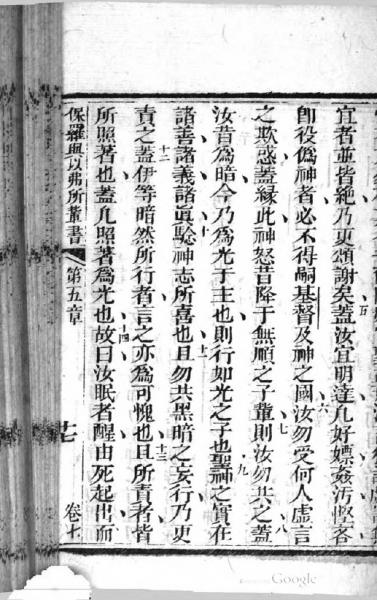 宜者並皆絶乃更頌謝矣蓋汝宜明達凡好嫖姦汚慳吝
五
即役僞神者必不得嗣基督及神之國汝勿受何人虛言
六
之欺惑蓋緣此神怒昔降于無順之子輩則汝勿共之蓋
七
八
汝昔為暗今乃為光于主也則行如光之子也聖神之實在
九
諸善諸義諸眞驗神志所喜也且勿共黑暗之妄行乃更
十
十一
責之蓋伊等暗然所行者言之亦為可愧也且所責者皆
十二
十三
所照著也蓋凡照著為光也故曰汝眠者醒由死起出而
十四
保羅與以弗所輩書
第五章
十七
卷十
Google